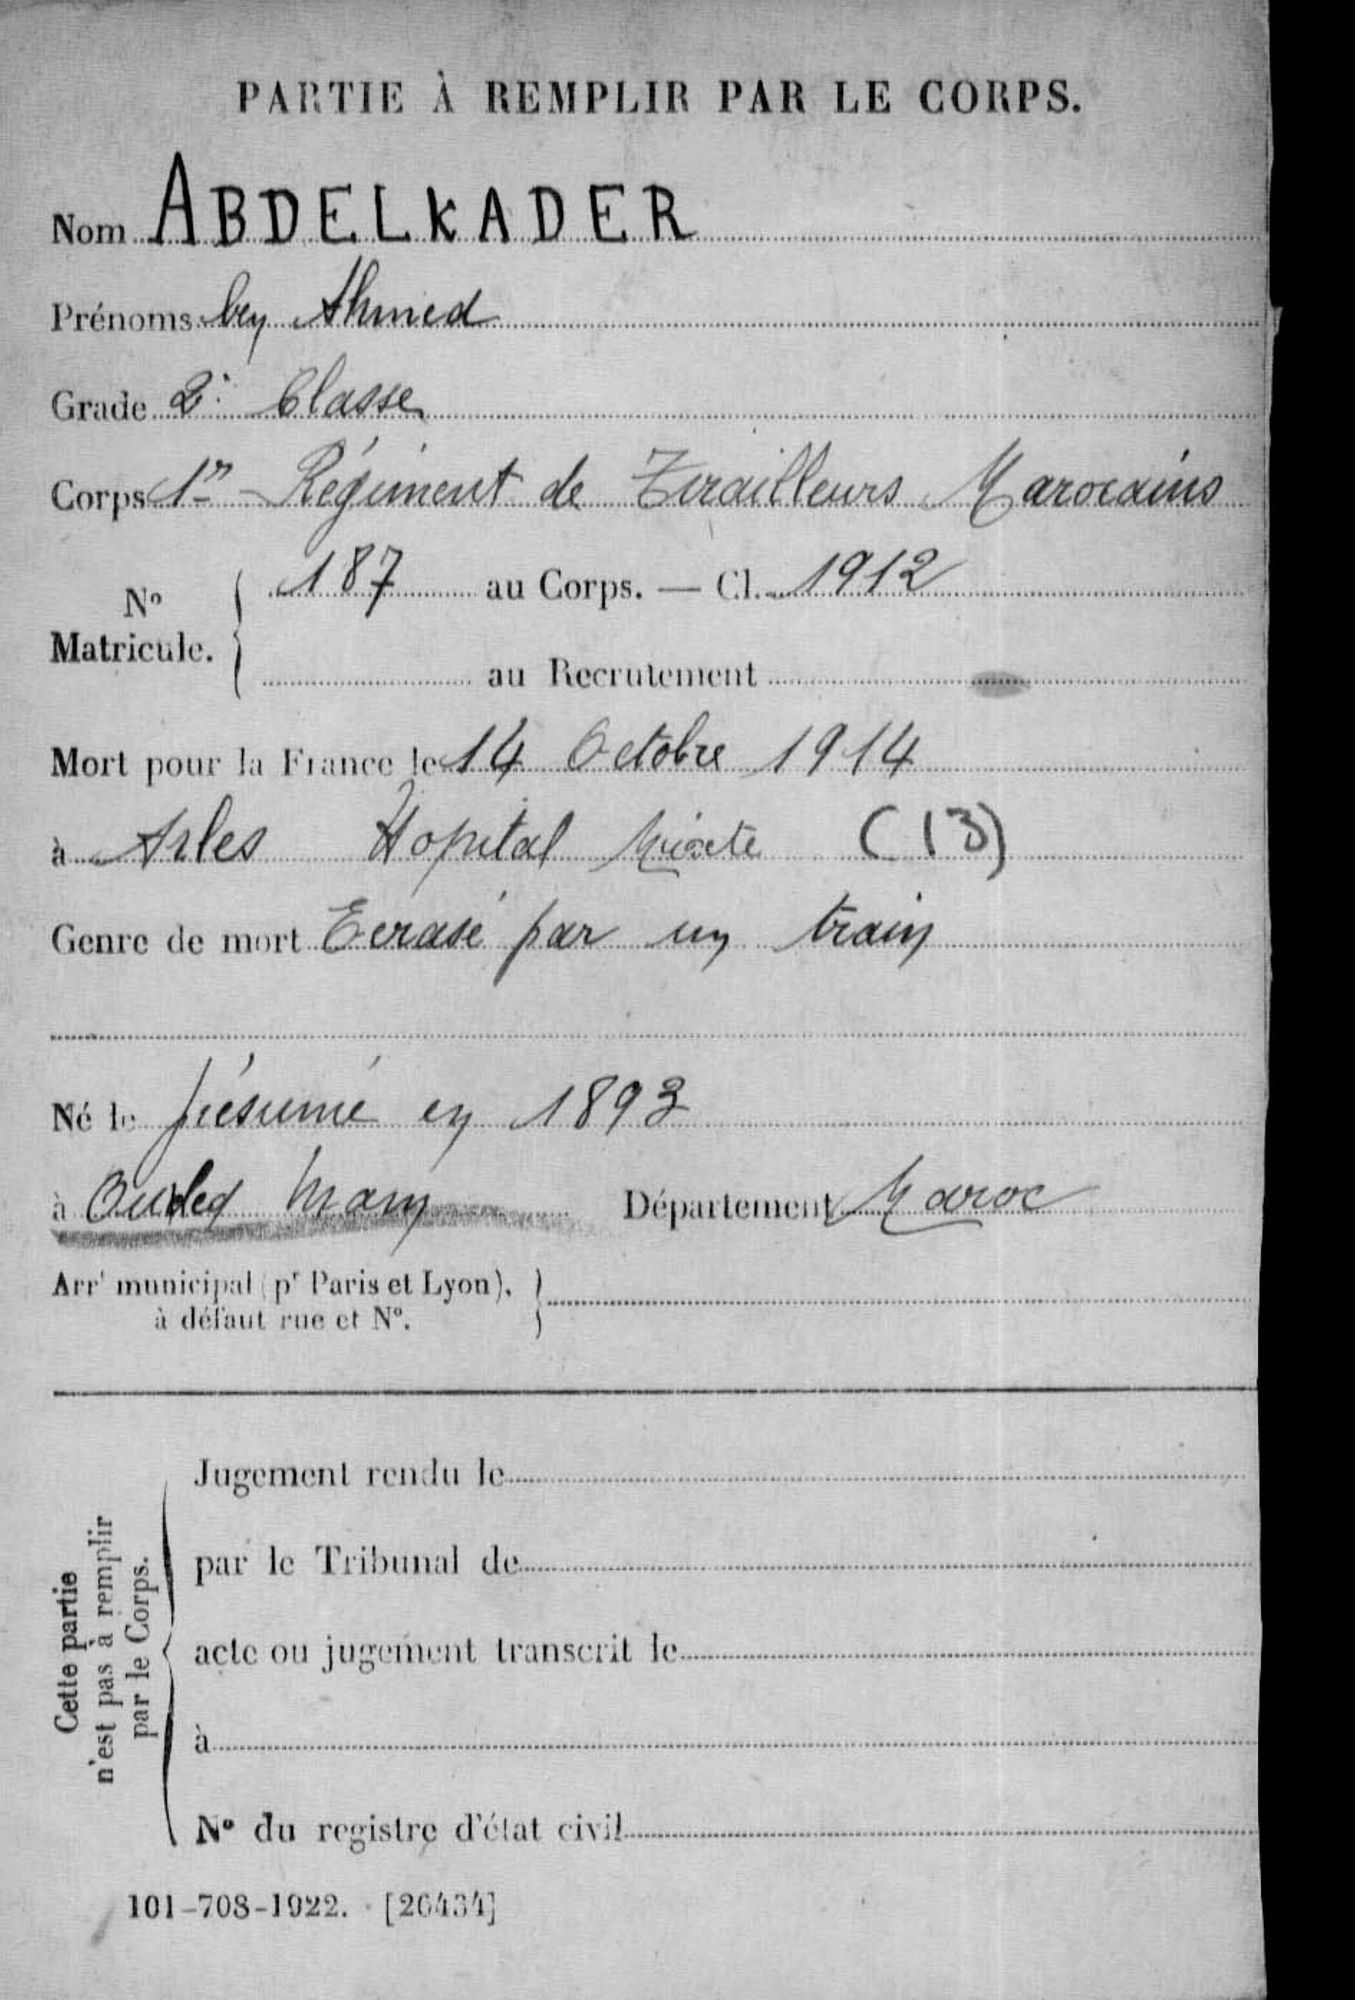 PARTIE À REMPLIR PAR LE CORPS.
Nom ABDELKADER
Prénoms ben Ahmed
Grade 2e Classe
Corps 1er Régiment de Tirailleurs Marocains
No Matricule. 187 au Corps. — Cl. 1912
au Recrutement
Mort pour la France le 14 Octobre 1914
à Arles Hopital Mixte (13)
Genre de mort Ecrasé par un train
Né le présumé en 1893
à Département Maroc
Arrt municipal (pr Paris et Lyon),
à défaut rue et No.
Cette partie
n'est pas à remplir
par le Corps.
Jugement rendu le
par le Tribunal de
acte ou jugement transcrit le
à
No du registre d'état civil
101-708-1922. [26434]